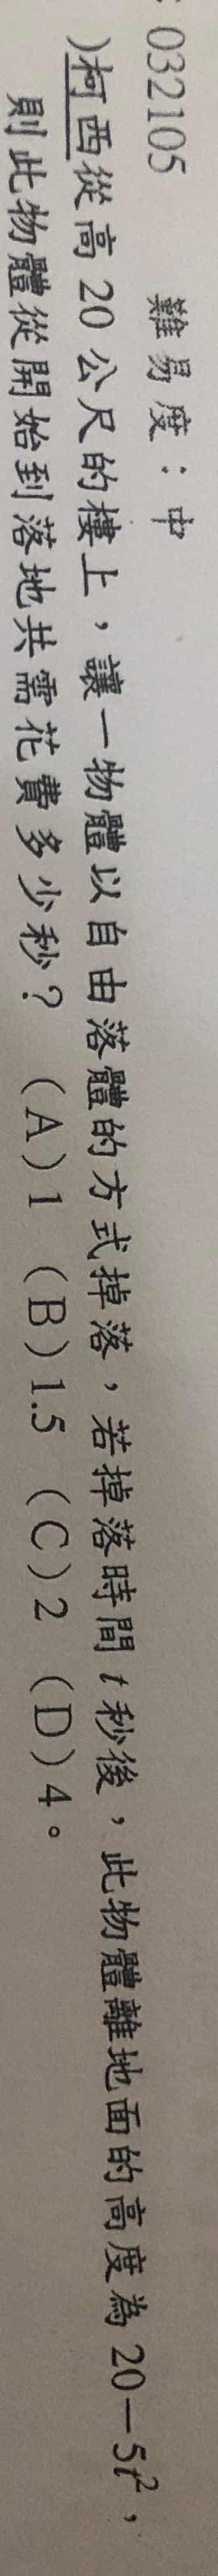 : 032105 難易度：中
)柯西從高 20 公尺的樓上，讓一物體以自由落體的方式掉落，若掉落時間 t 秒後，此物體離地面的高度為 20－5t²，
則此物體從開始到落地共需花費多少秒？ （A）1 （B）1.5 （C）2 （D）4。